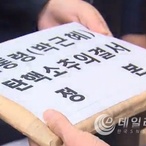 통령(박근혜)
탄핵소추의결서
정 본
데일리